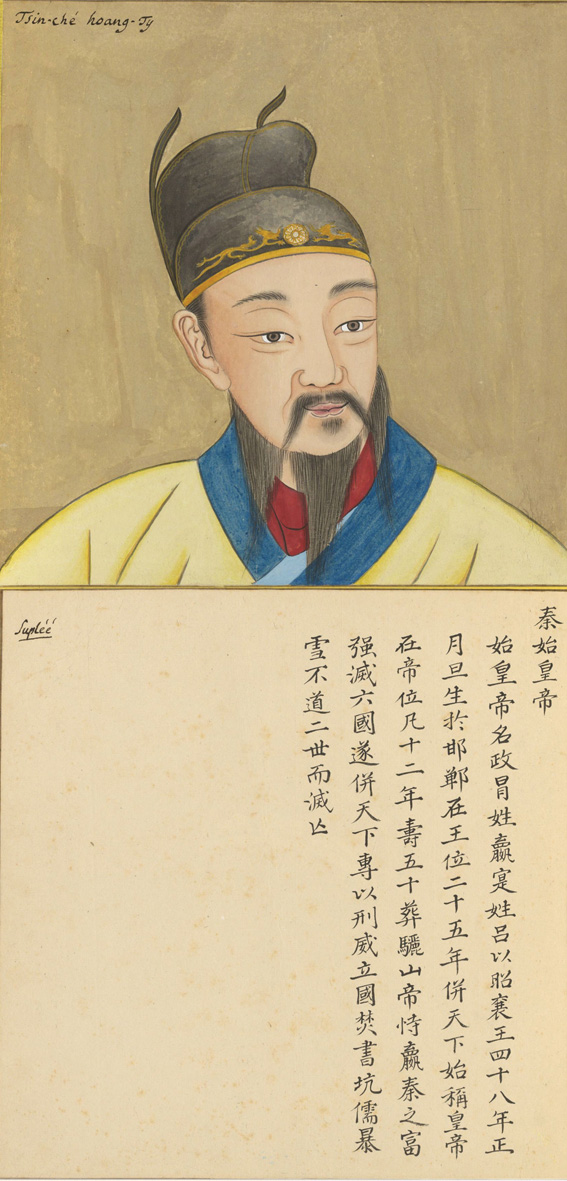 Tsin-ché hoang-Ty
Suplée
秦始皇帝
始皇帝名政冒姓嬴寔姓吕以昭襄王四十八年正
月旦生於邯鄲在王位二十五年併天下始稱皇帝
在帝位凡十二年壽五十葬驪山帝恃嬴秦之富
强滅六國遂併天下專以刑威立國焚書坑儒暴
雪不道二世而滅亡